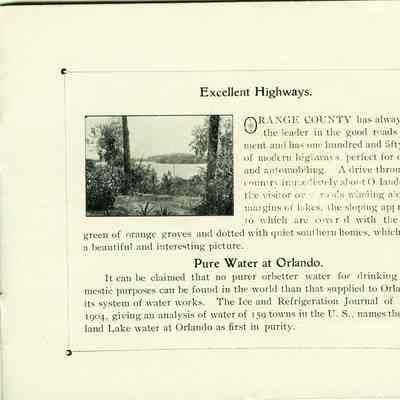 Excellent Highways.
ORANGE COUNTY has alway
the leader in the good roads
ment and has one hundred and fift
of modern highways, perfect for
and automobiling. A drive throu
country immediately about Orland
the visitor over roads winding alo
margins of lakes, the sloping app
to which are covered with the
green of orange groves and dotted with quiet southern homes, which
a beautiful and interesting picture.
Pure Water at Orlando.
It can be claimed that no purer orbetter water for drinking
mestic purposes can be found in the world than that supplied to Orla
its system of water works. The Ice and Refrigeration Journal of
1904, giving an analysis of water of 159 towns in the U. S., names the
land Lake water at Orlando as first in purity.